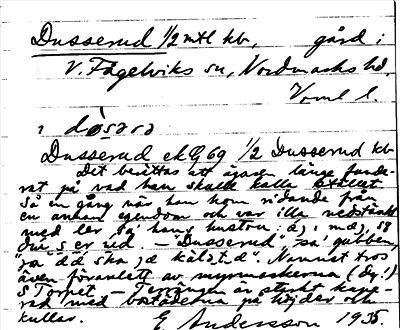 Dusserud 1/2 mtl kb, gård i
V. Fågelviks sn, Nordmarks hd,
Verml. l.
i dɵ̀sərə
Dusserud ekG 69 1/2 Dusserud kb
Det berättas att ägaren länge funde-
rat på vad han skulle kalla stället
Så en gång när han kom ridande från
en annan egendom och var illa nedstänkt
med ler sa hans hustru:
ud – "Dusserud" sa gubben,
Namnet tros
även föranlett av myrmarkerna (dy!)
S Tornet – Terrängen är starkt kupe-
rad med bostäderna på höjder och
kullar.
E. Andersson 1935.